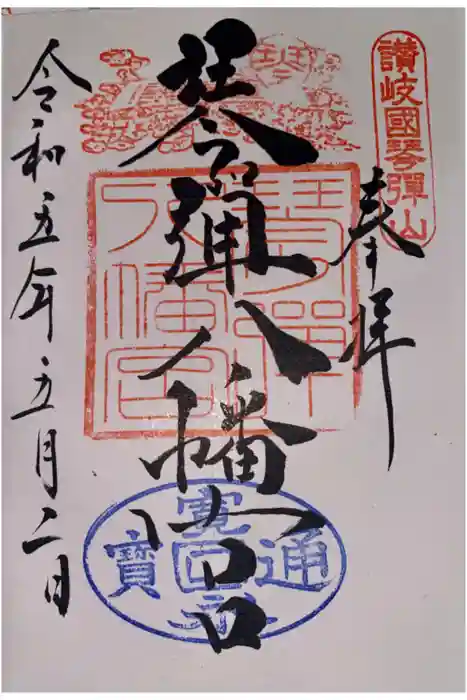 讃岐國琴彈山
奉拝
琴弾八幡宮
琴弾八幡宮
寛永通寳
令和五年五月二日